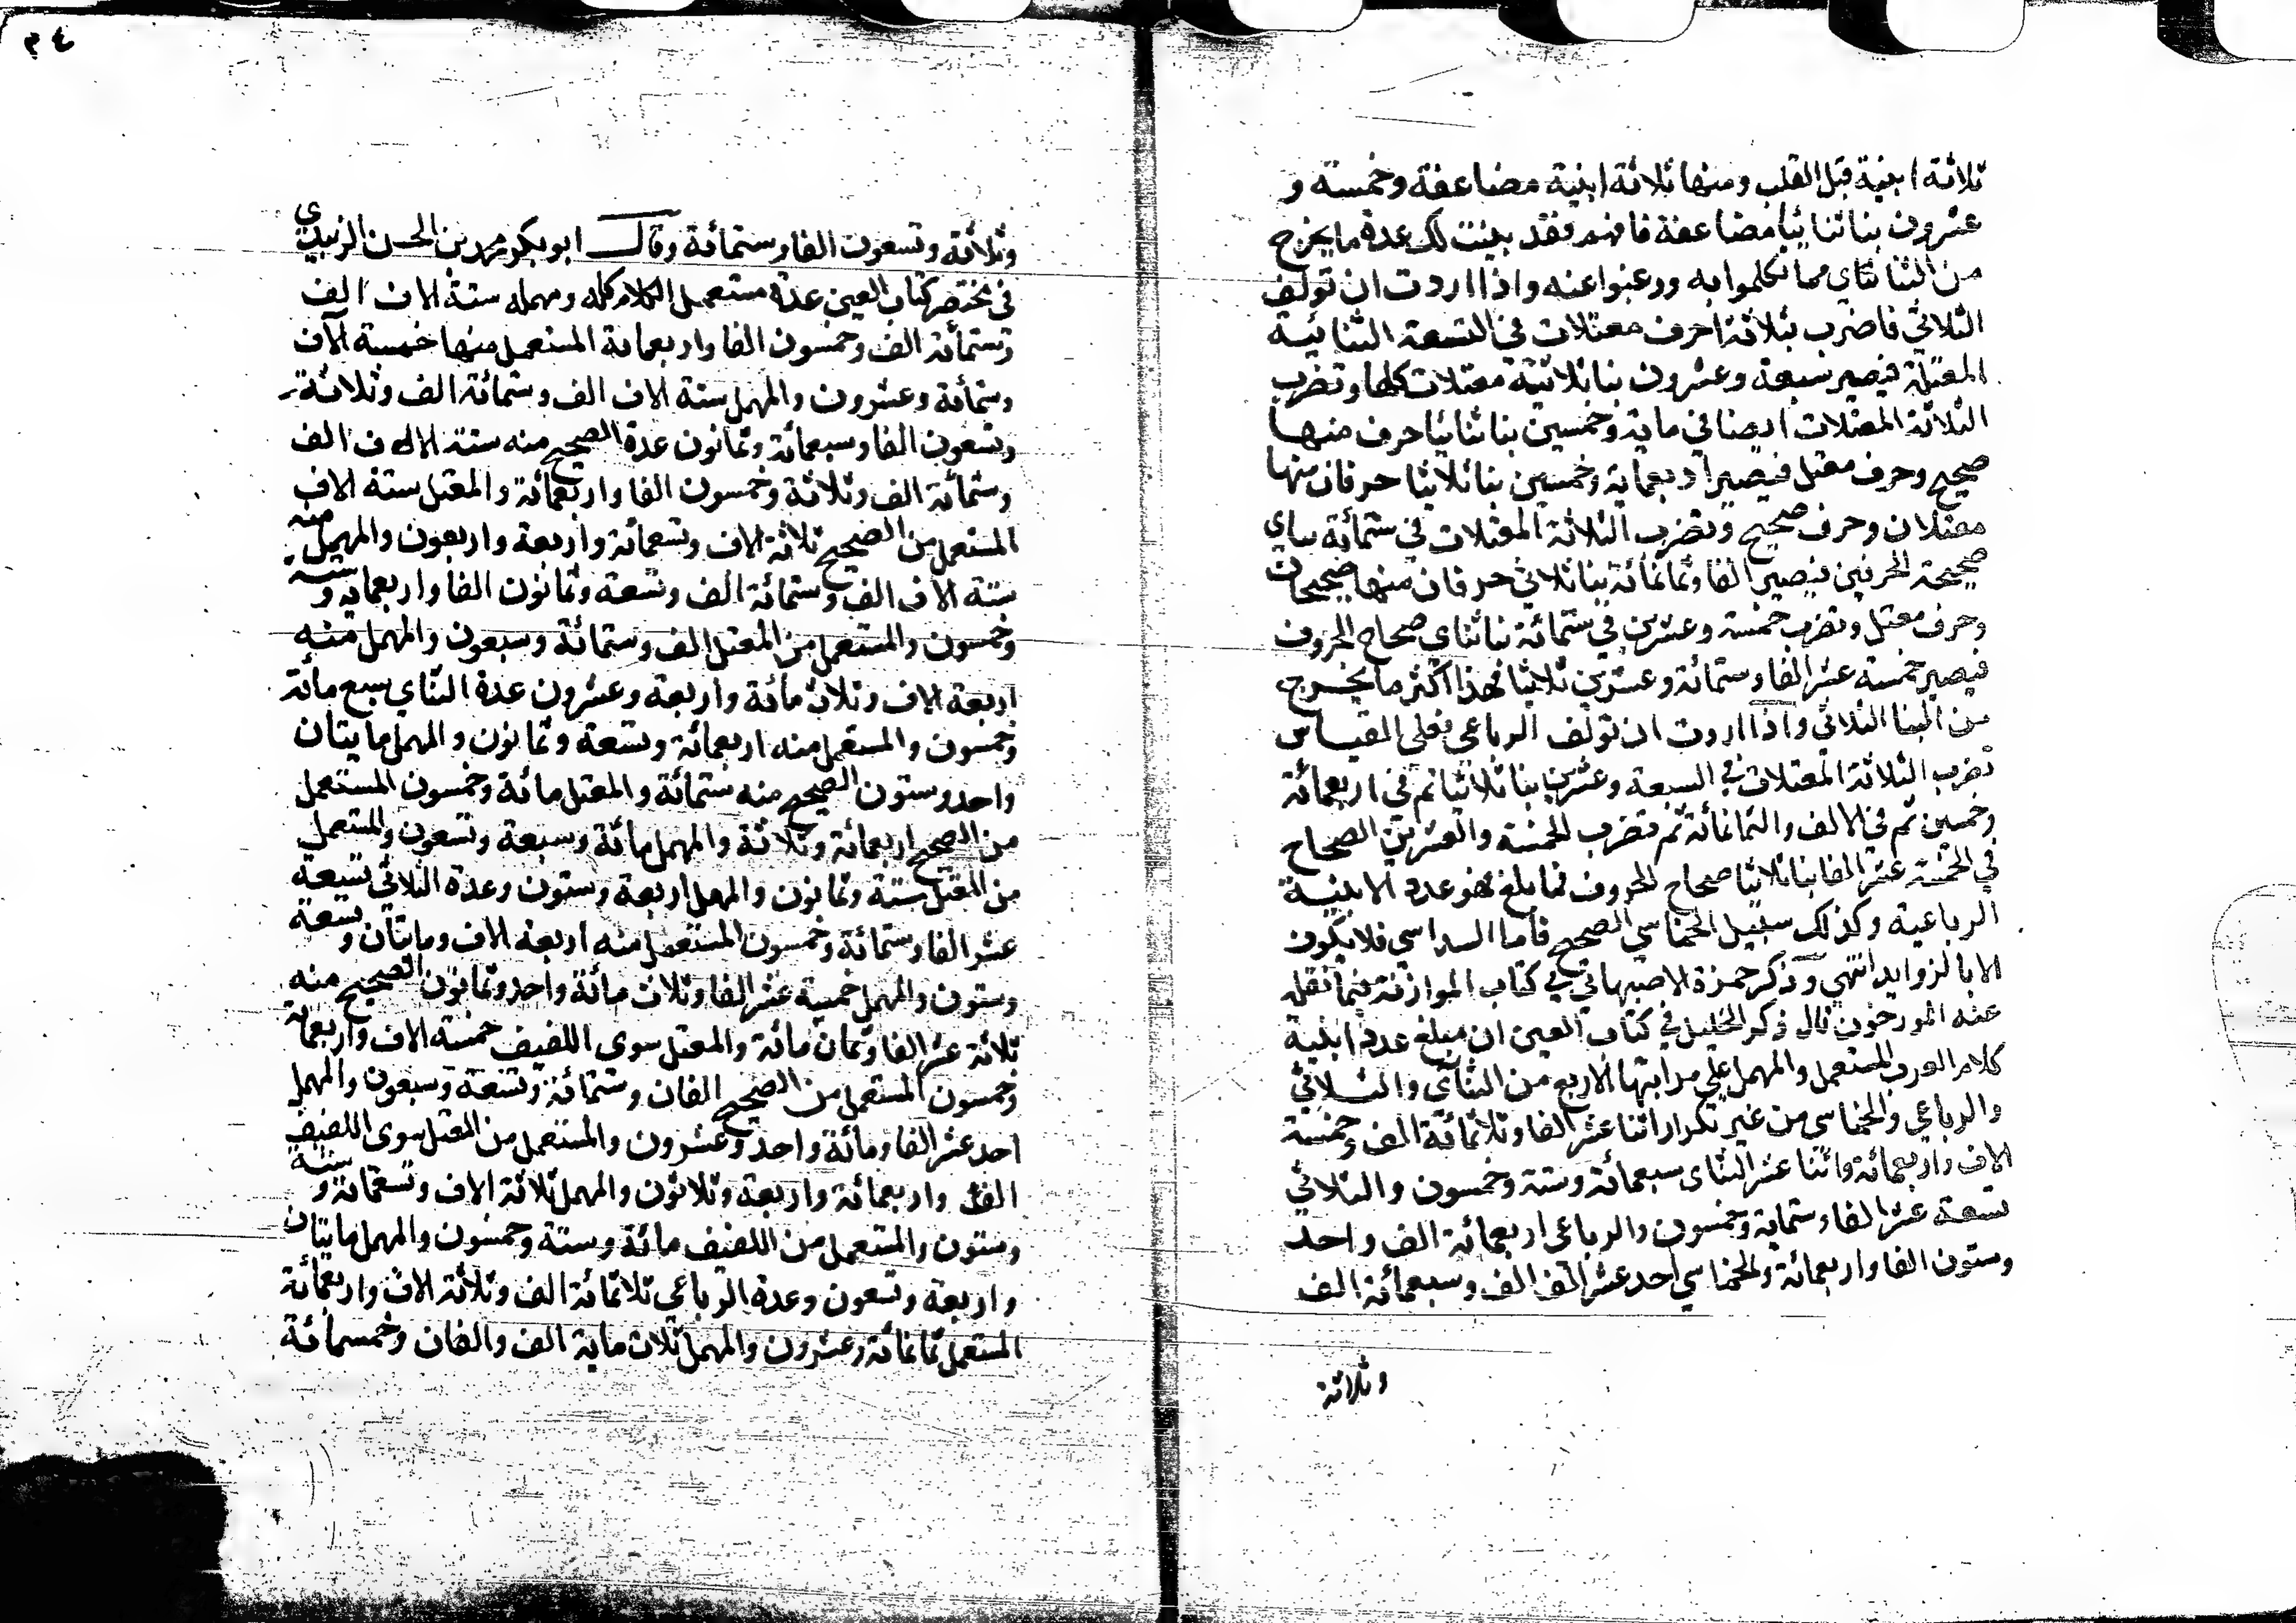 ثلاثة ابنية قبل القلب ومنها ثلاثة ابنية مضاعفة وخمسة و
عشرون بنا ثنائيا مضاعفة فافهم فقد بينت لك عدة ما يخرج
من الثنائي مما تكلموا به ورغبوا عنه واذا اردت ان تولف
الثلاثي فاضرب بثلاثة احرف معتلات في التسعة الثنائية
المعتلة فيصير سبعة وعشرون بنا ثلاثية معتلات كلها وتضرب
الثلاثة المعتلات ايضا في ماية وخمسين بنا ثنائيا حرف منها
صحيح وحرف معتل فيصير اربعماية وخمسين بنا ثلاثيا حرفان منها
معتلان وحرف صحيح وتضرب الثلاثة المعتلات في ستمائة بناي
صحيحة الحرفين فيصير الفا وثمانمائة بنا ثلاثي حرفان منها صحيحان
وحرف معتل وتضرب خمسة وعشرين في ستمائة بنا ثناى صحاح الحروف
فيصير خمسة عشر الفا وستمائة وعشرين ثلاثيا فهذا اكثر ما يخرج
من البنا الثلاثي واذا اردت ان تولف الرباعي فعلى القياس
تضرب الثلاثة المعتلات في السبعة وعشرين بنا ثلاثيا ثم في اربعمائة
وخمسين ثم في الالف والثمانمائة ثم تضرب الخمسة والعشرين الصحاح
في الخمسة عشر الفا بنا ثلاثيا صحاح الحروف فما بلغ فهو عدد الابنية
الرباعية وكذلك سبيل الخماسي الصحيح فاما السداسي فلا يكون
الا بالزوايد انتهى وذكر حمزة الاصبهاني في كتاب الموازنة فيما نقله
عنه المورخون قال ذكر الخليل في كتاب العين ان مبلغ عدد ابنية
كلام العرب المستعمل والمهمل على مراتبها الاربع من الثنآى والثلاثي
والرباعي والخماسي من غير تكرار اثنا عشر الفا وثلاثمائة الف وخمسة
الاف واربعمائة واثنا عشر الثناى سبعمائة وستة وخمسون والثلاثي
تسعة عشر الفا وستماية وخمسون والرباعي اربعمائة الف واحد
وستون الفا واربعمائة والخماسي احد عشر الف الف وسبعمائة الف
وثلاثة
٢٤
وثلاثة وتسعون الفا وستمائة وقال ابو بكر محمد بن الحسن الزبيدي
في مختصر كتاب العين عدة مستعمل الكلام كله ومهمله ستة الاف الف
وستمائة الف وخمسون الفا واربعماية المستعمل منها خمسة آلاف
وستمائة وعشرون والمهمل ستة الاف الف وستمائة الف وثلاثة
وتسعون الفا وسبعمائة وثمانون عدة الصحيح منه ستة الاف الف
وستمائة الف وثلاثة وخمسون الفا واربعمائة والمعتل ستة الاف
المستعمل من الصحيح ثلاثة الاف وتسعمائة واربعة واربعون والمهمل منه
ستة الاف الف وستمائة الف وتسعة وثمانون الفا واربعماية وستة
وخمسون والمستعمل من المعتل الف وستمائة وسبعون والمهمل منه
اربعة الاف وثلاث مائة واربعة وعشرون عدة الثناي سبع مائة
وخمسون والمستعمل منه اربعمائة وتسعة وثمانون والمهمل مايتان
واحد وستون الصحيح منه ستمائة والمعتل مائة وخمسون المستعمل
من الصحيح اربعمائة وثلاثة والمهمل مائة وسبعة وتسعون والمستعمل
من المعتل ستة وثمانون والمهمل اربعة وستون وعدة الثلاثي تسعة
عشر الفا وستمائة وخمسون المستعمل منه اربعة الاف ومايتان وتسعة
وستون والمهمل خمسة عشر الفا وثلاث مائة واحد وثمانون الصحيح منه
ثلاثة عشر الفا وثمان مائة والمعتل سوى اللفيف خمسة الاف واربعماية
وخمسون المستعمل من الصحيح الفان وستمائة وتسعة وسبعون والمهمل
احد عشر الفا ومائة واحد وعشرون والمستعمل من المعتل سوى اللفيف
الف واربعمائة واربعة وثلاثون والمهمل ثلاثة الاف وتسعمائة وستة
وستون والمستعمل من اللفيف مائة وستة وخمسون والمهمل مايتان
واربعة وتسعون وعدة الرباعي ثلاثمائة الف وثلاثة الاف واربعمائة
المستعمل ثمانمائة وعشرون والمهمل ثلاث ماية الف والفان وخمسمائة